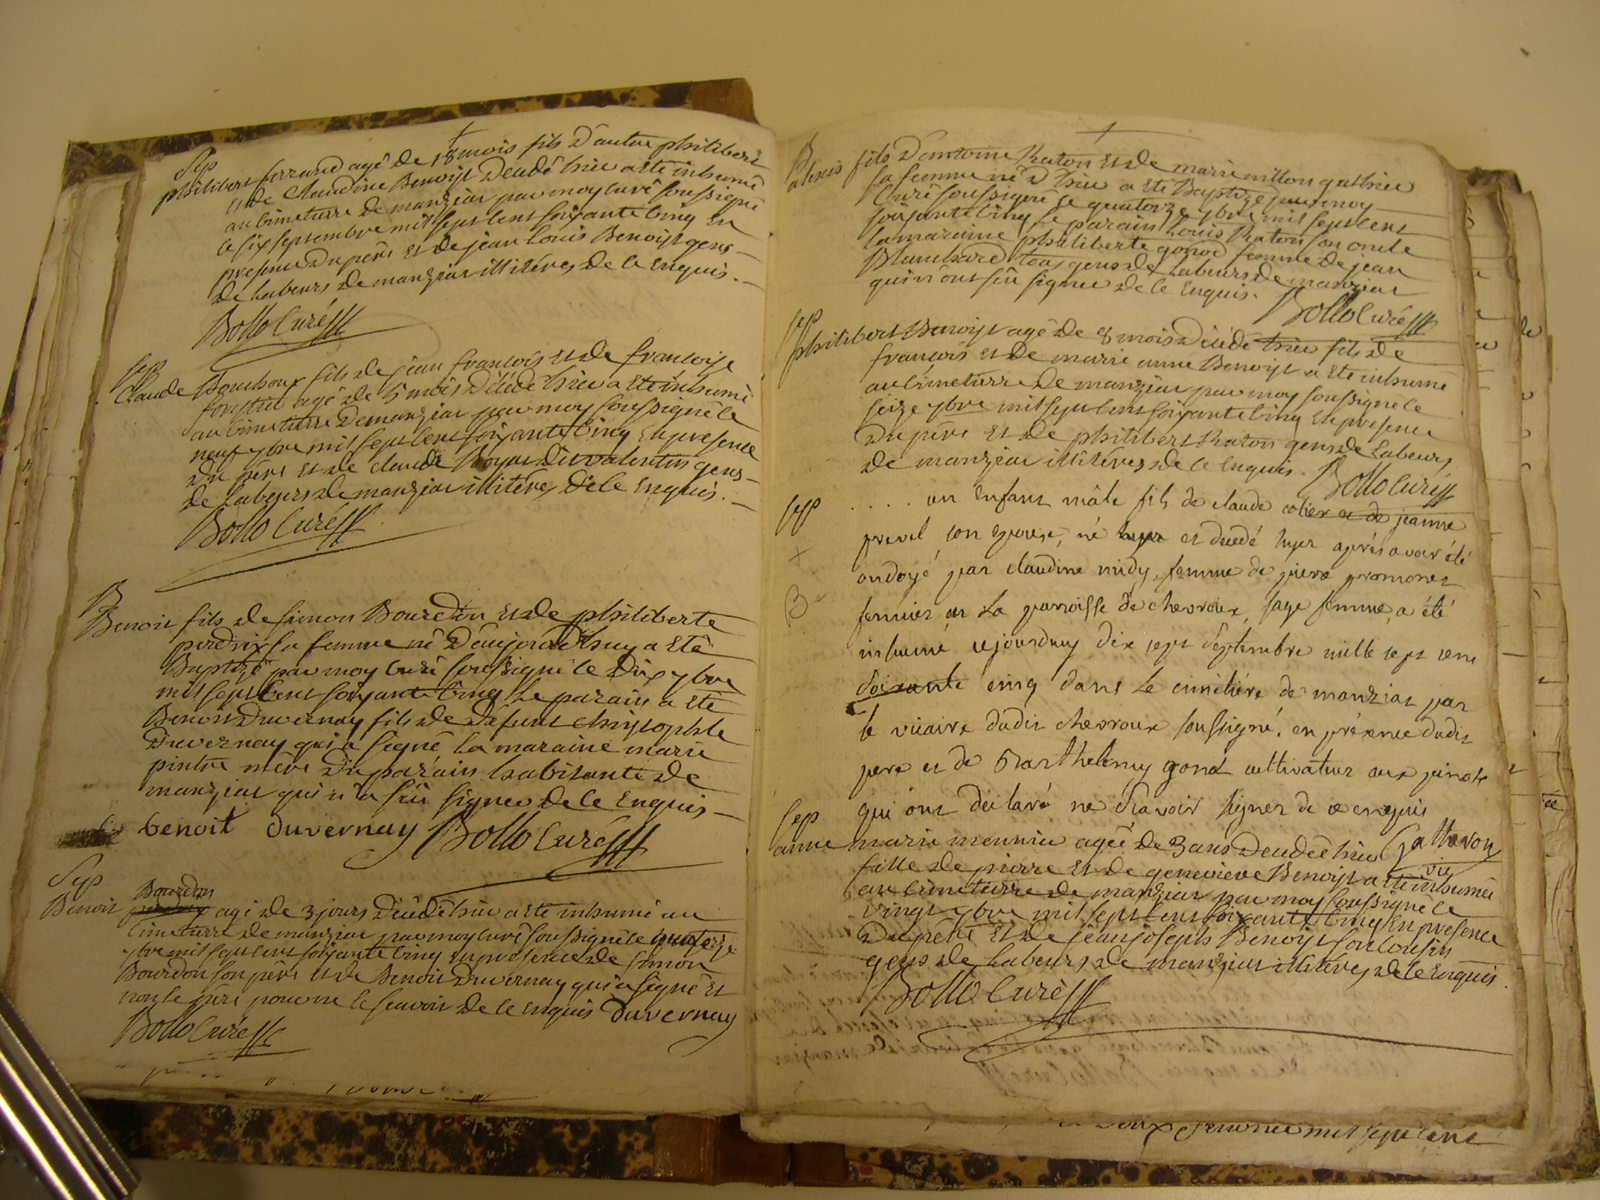 Sep
philibert ferrand agé de 18 mois fils d'autre philibert
et de Claudine Benoist decedé hier a eté inhumé
au cimetierre de manziat par moy curé soussigné
le six septembre mil sept cent soixante cinq en
presence du pere et de jean louis Benoist gens
de labeurs de manziat illitérés de ce enquis.
Bollo Curé
Sep
Claude Bouchoux fils de jean francois et de francoise
agé de 5 mois décédé hier a eté inhumé
au cimetierre de manziat par moy soussigné le
neuf 7bre mil sept cent soixante cinq en presence
du pere et de Claude Boyat dit valentin gens
de labeurs de manziat illitérés de ce enquis.
Bollo Curé
B
Benoit fils de simon Bourdon et de philiberte
perdrix sa femme né d'aujourd'huy a eté
Baptizé par moy curé soussigné le dix 7bre
mil sept cent soixante cinq le parain a eté
Benoit Duvernay fils de defunt christophle
Duvernay qui a signé la maraine marie
pintre mere du parain habitante de
manziat qui n'a sçu signer de ce enquis
benoit duvernay Bollo Curé
Sep
Bourdon
Benoit agé de 3 jours décédé hier a eté inhumé au
cimetierre de manziat par moy curé soussigné le quatorze
7bre mil sept cent soixante cinq en presence de simon
Bourdon son pere et de Benoit Duvernay qui a signé et
non le pere pour ne le scavoir de ce enquis duvernay
Bollo Curé
B
alexis fils d'antoine Raton et de marie millon gathier
sa femme né d'hier a eté baptizé par moy
Curé soussigné le quatorze 7bre mil sept cent
soixante cinq le parain Louis Raton son oncle
la maraine philiberte gonod femme de jean
Blanchard tous gens de labeurs de manziat
qui n'ont sçu signer de ce enquis.
Bollo Curé
Sep
philibert Benoist agé de 8 mois décédé hier fils de
francois et de marie anne Benoist a eté inhumé
au cimetierre de manziat par moy soussigné le
seize 7bre mil sept cent soixante cinq en presence
du pere et de philibert Raton gens de labeurs
de manziat illitérés de ce enquis. Bollo Curé
Sep
. . . . . un enfant mâle fils de claude et de jeanne
prevel son epouse, né hyer et decedé hyer après avoir été
ondoyé par claudine midy, femme de piere promonet
fermier en la parroisse de chevroux, sage femme, a été
inhumé cejourd'uy dix sept septembre mille sept cent
soixante cinq dans le cimetière de manziat par
le vicaire dudit chevroux soussigné, en présence dudit
pere et de Barthelemy gonod cultivateur aux pinoux
qui ont declaré ne scavoir signer de ce enquis
Gatheron
vic
Sep
anne marie meunier agée de 3 ans decedée hier
fille de pierre et de genevieve Benoist a eté inhumée
au cimetierre de manziat par moy soussigné le
vingt 7bre mil sept cent soixante cinq en presence
du pere et de jean joseph Benoist son cousin
gens de labeurs de manziat illitérés de ce enquis.
Bollo Curé